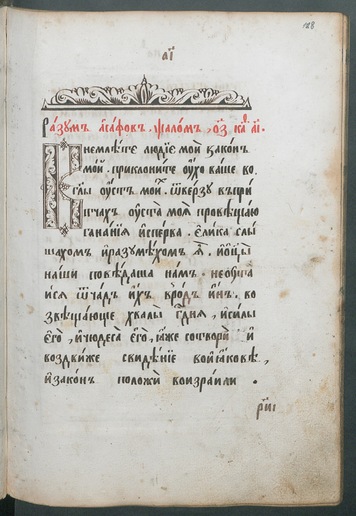 128
а҃і
Разумъ асафовъ. ѱаломъ, о҃з
Внемлѣте людїе мои законъ
мой. приклоните ѹхо ваше во
глы ѹстъ мои. ѿверзу въ при
тчахъ ѹста моя провѣщаю
ганания исперва. елика слы
шахомъ и разумѣхомъ я. и ѿцы
наши повѣдаша намъ. не ѹта
ися ѿ чадъ ихъ в родъ инъ. во
звѣщающе хвалы гдня, и силы
его, и чюдеса его, яже сотвори и
воздвиже свидѣние во иѧковѣ,
и законъ положи во израили.
р҃иі